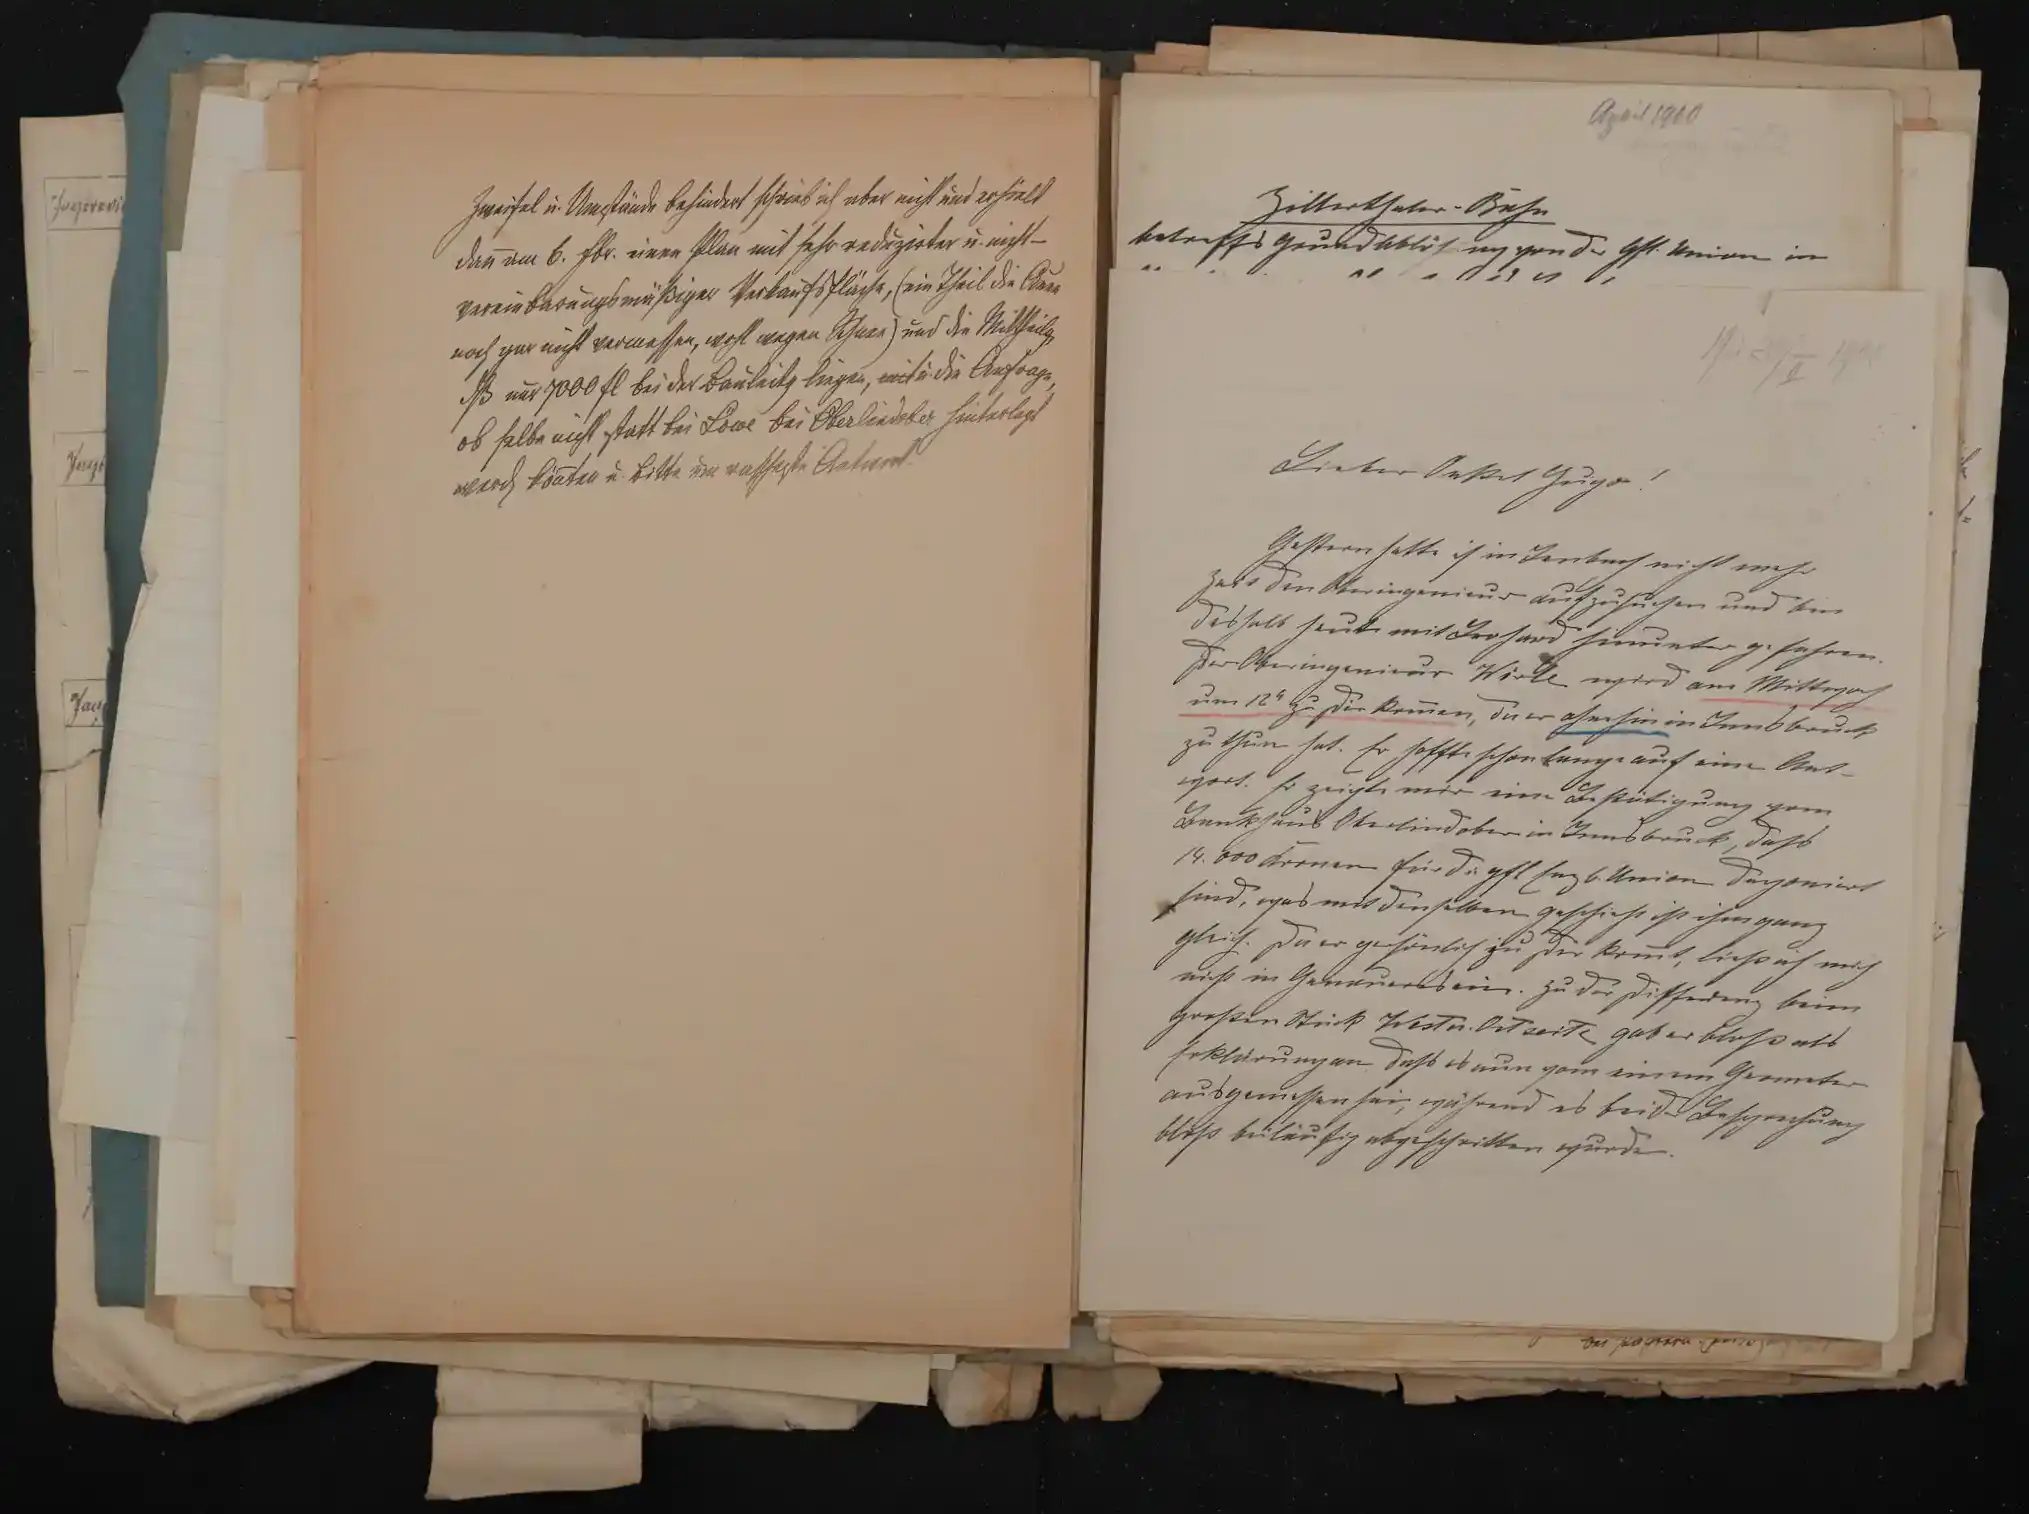 Zweifel u. Umstände behindert schrieb ich aber nicht und erhielt
dan̄ am 6. Fbr. einen Plan mit sehr reduzirter u. nicht-
vereinbarungsmäßiger Verkaufsfläche, (ein Theil die Auen
noch gar nicht vermessen, wohl wegen Schnee) und die Mittheilg
dß nur 7000 fl bei der Bauleitg liegen, mit u. die Anfrage,
ob selbe nicht statt bei Löwe bei Oberlindober hinterlegt
werd. kön̄ten u. bitte um rascheste Antwort.
April 1900
Zillerthaler-Bahn
betreffs Grundablösung von der Gft. Union in
II 1900
Lieber Onkel Hugo!
Gestern hatte ich in Jenbach nicht mehr
Zeit den Oberingenieur aufzusuchen und bin
deshalb heute mit hinunter gefahren.
Der Oberingenieur wird am Mittwoch
um 12h zu Dir kom̄en, da er ohnehin in Innsbruck
zu thun hat. Er hoffte schon lange auf eine Ant-
wort. Er zeigte mir eine Bestätigung vom
Bankhaus Oberlindober in Innsbruck, dass
14.000 Kronen für die gft Union deponiert
sind, was mit denselben geschieht ist ihm ganz
gleich. Da er persönlich zu Dir kom̄t, ließ ich mich
nicht in Genaueres ein. Zu der Differenz beim
großen Stück West u. Ostseite gab er bloß als
Erklärung an dass es nun von einem Geometer
ausgemessen sei, während es bei der Besprechung
bloß beiläufig abgeschritten wurde.